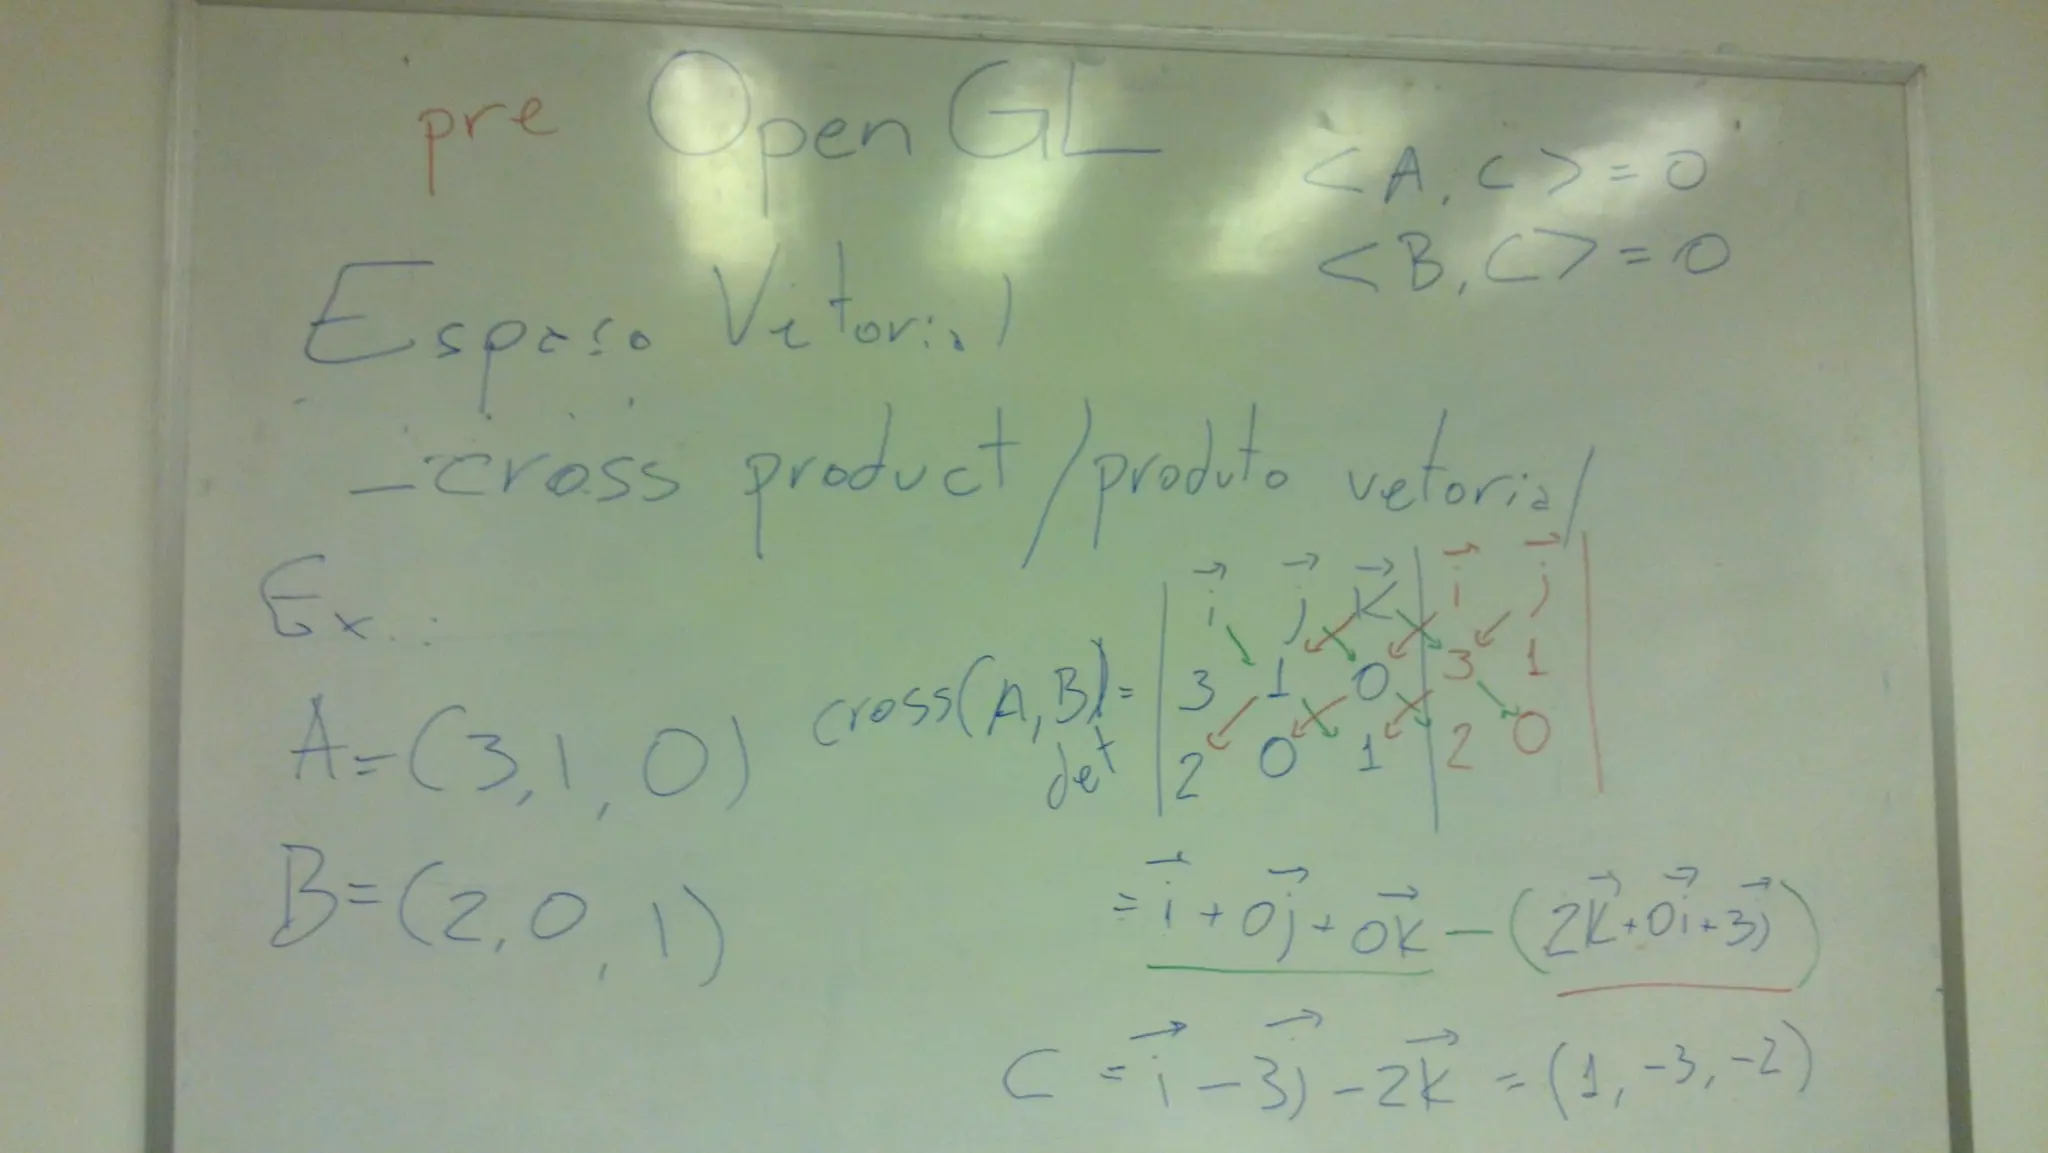 pre OpenGL
<A, C> = 0
<B, C> = 0
Espaço Vetorial
- cross product / produto vetorial
Ex.:
A = (3, 1, 0)
B = (2, 0, 1)
cross(A, B) = | i⃗ j⃗ k⃗ | i⃗ j⃗ |
3 1 0 3 1
det 2 0 1 2 0
= i⃗ + 0j⃗ + 0k⃗ - (2k⃗ + 0i⃗ + 3j⃗)
C = i⃗ - 3j⃗ - 2k⃗ = (1, -3, -2)